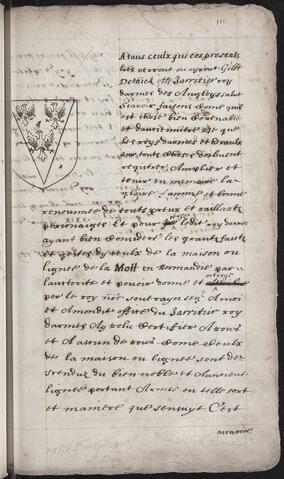 111
A tous ceulx qui ces presentz
lres verront ou oyront Gilbt
Dethick Als Jarretier roy
darmes des Angloys salut
Scavoir faisons come qui
est chose bien convenable
et dauctorité est que
les roys darmes et heraulx
sur touts choses doibvent
registrer Amplier et
tenir en memoire la
gloire fame et bonne
renommée de touts preux et vaillantz
personaiges et pour ledit roy darmes
ayant bien considéré les grants faitz
et gestes dyceulx de la maison ou
lignée de la Mott en Normandie par
lauctorité et pouvoir donné et
par le roy nre souverayn segr A moi
et A mondit office du Jarretier roy
darmes Ay volu certifier A vous
et A chacun de vous come ceulx
de la maison ou lignée sont des
cenduz du bien noble et Auncient
lignée portant Armes en telle sort
et maniere que sensuyt. C'est
ascavoir